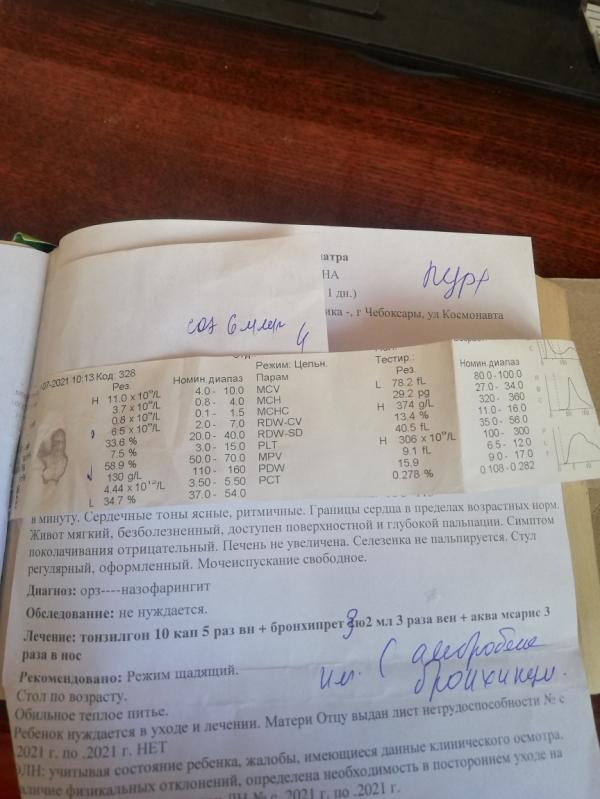 соэ 6 мм/ч
4
атра
НА
1 дн.)
ика -, г Чебоксары, ул Космонавта
07-2021 10:13 Код: 328
Рез.
H 11.0 x 10⁹/L
3.7 x 10⁹/L
0.8 x 10⁹/L
6.5 x 10⁹/L
33.6 %
7.5 %
58.9 %
130 g/L
4.44 x 10¹²/L
L 34.7 %
Номин.диапаз
4.0 - 10.0
0.8 - 4.0
0.1 - 1.5
2.0 - 7.0
20.0 - 40.0
3.0 - 15.0
50.0 - 70.0
110 - 160
3.50 - 5.50
37.0 - 54.0
Режим: Цельн.
Парам
MCV
MCH
MCHC
RDW-CV
RDW-SD
PLT
MPV
PDW
PCT
Тестир.:
Рез.
L 78.2 fL
29.2 pg
H 374 g/L
13.4 %
40.5 fL
H 306 x 10⁹/L
9.1 fL
15.9
0.278 %
Номин.диапаз
80.0 - 100.0
27.0 - 34.0
320 - 360
11.0 - 16.0
35.0 - 56.0
100 - 300
6.5 - 12.0
9.0 - 17.0
0.108 - 0.282
в минуту. Сердечные тоны ясные, ритмичные. Границы сердца в пределах возрастных норм.
Живот мягкий, безболезненный, доступен поверхностной и глубокой пальпации. Симптом
поколачивания отрицательный. Печень не увеличена. Селезенка не пальпируется. Стул
регулярный, оформленный. Мочеиспускание свободное.
Диагноз: орз----назофарингит
Обследование: не нуждается.
Лечение: тонзилгон 10 кап 5 раз вн + бронхипрет 2 мл 3 раза вен + аква мсарис 3
раза в нос
Рекомендовано: Режим щадящий.
Стол по возрасту.
Обильное теплое питье.
Ребенок нуждается в уходе и лечении. Матери Отцу выдан лист нетрудоспособности № с
2021 г. по .2021 г. НЕТ
ЭЛН: учитывая состояние ребенка, жалобы, имеющиеся данные клинического осмотра.
наличие физикальных отклонений, определена необходимость в постороннем уходе на
ЛН № с. 2021 г. по .2021 г.